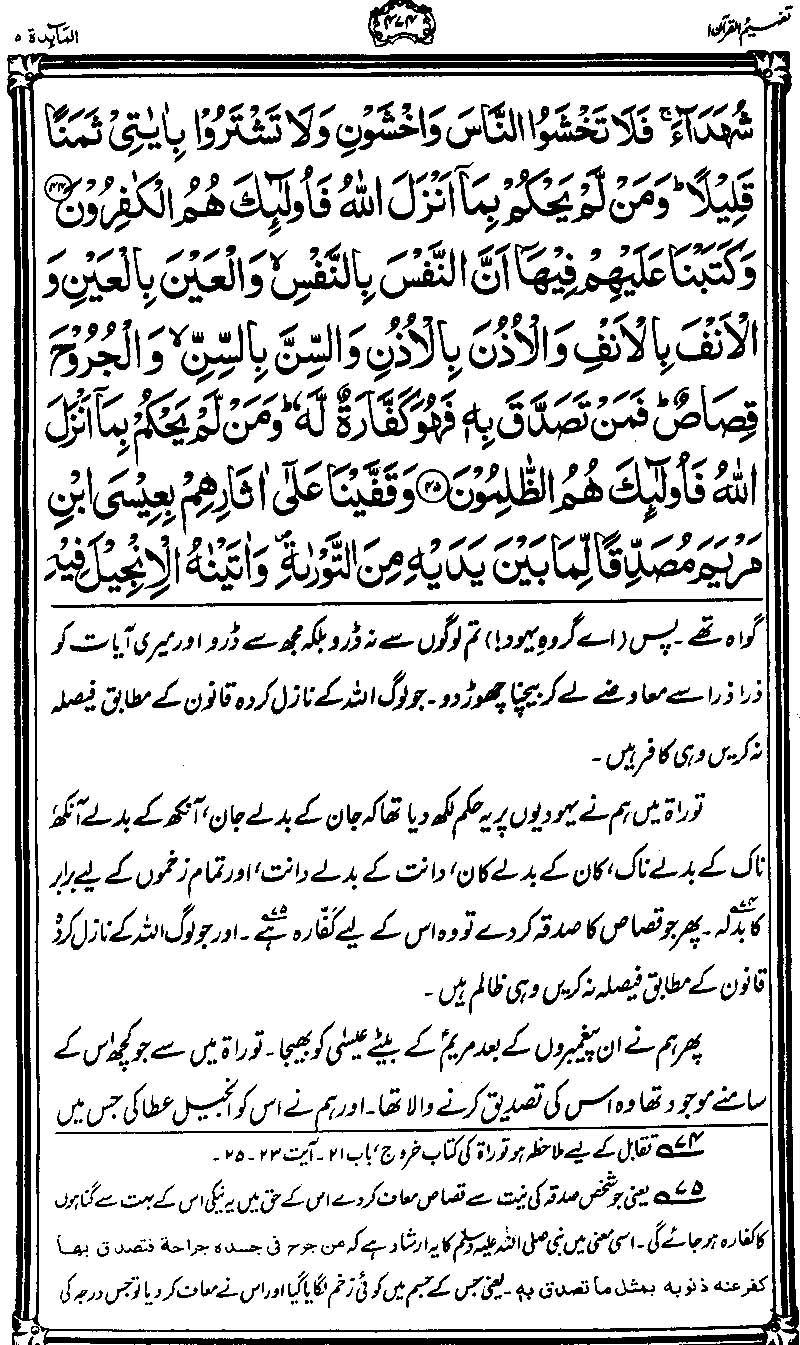 تفہیم القرآن ۱
۴۷۴
المآیدۃ ۵
شُهَدَآءَ ۚ فَلَا تَخْشَوُا النَّاسَ وَاخْشَوْنِ وَلَا تَشْتَرُوْا بِاٰيٰتِيْ ثَمَنًا
قَلِيْلًا ؕ وَمَنْ لَّمْ يَحْكُمْ بِمَآ اَنْزَلَ اللّٰهُ فَاُولٰٓئِكَ هُمُ الْكٰفِرُوْنَ ﴿۴۴﴾
وَكَتَبْنَا عَلَيْهِمْ فِيْهَآ اَنَّ النَّفْسَ بِالنَّفْسِ ۙ وَالْعَيْنَ بِالْعَيْنِ وَ
الْاَنْفَ بِالْاَنْفِ وَالْاُذُنَ بِالْاُذُنِ وَالسِّنَّ بِالسِّنِّ ۙ وَالْجُرُوْحَ
قِصَاصٌ ؕ فَمَنْ تَصَدَّقَ بِهٖ فَهُوَ كَفَّارَةٌ لَّهٗ ؕ وَمَنْ لَّمْ يَحْكُمْ بِمَآ اَنْزَلَ
اللّٰهُ فَاُولٰٓئِكَ هُمُ الظّٰلِمُوْنَ ﴿۴۵﴾ وَقَفَّيْنَا عَلٰٓى اٰثَارِهِمْ بِعِيْسَى ابْنِ
مَرْيَمَ مُصَدِّقًا لِّمَا بَيْنَ يَدَيْهِ مِنَ التَّوْرٰىةِ ۪ وَاٰتَيْنٰهُ الْاِنْجِيْلَ فِيْهِ
گواہ تھے ۔ پس (اے گروہِ یہود!) تم لوگوں سے نہ ڈرو بلکہ مجھ سے ڈرو اور میری آیات کو
ذرا ذرا سے معاوضے لے کر بیچنا چھوڑ دو ۔ جو لوگ اللہ کے نازل کردہ قانون کے مطابق فیصلہ
نہ کریں وہی کافر ہیں ۔
توراۃ میں ہم نے یہودیوں پر یہ حکم لکھ دیا تھا کہ جان کے بدلے جان، آنکھ کے بدلے آنکھ،
ناک کے بدلے ناک، کان کے بدلے کان، دانت کے بدلے دانت، اور تمام زخموں کے لیے برابر
کا بدلہ۷۴ ۔ پھر جو قصاص کا صدقہ کر دے تو وہ اس کے لیے کفّارہ ہے۷۵ ۔ اور جو لوگ اللہ کے نازل کردہ
قانون کے مطابق فیصلہ نہ کریں وہی ظالم ہیں ۔
پھر ہم نے ان پیغمبروں کے بعد مریمؑ کے بیٹے عیسٰی کو بھیجا ۔ توراۃ میں سے جو کچھ اس کے
سامنے موجود تھا وہ اس کی تصدیق کرنے والا تھا ۔ اور ہم نے اس کو انجیل عطا کی جس میں
۷۴ تقابل کے لیے ملاحظہ ہو توراۃ کی کتاب خروج، باب ۲۱ ۔ آیت ۲۳ ۔ ۲۵ ۔
۷۵ یعنی جو شخص صدقہ کی نیت سے قصاص معاف کر دے اس کے حق میں یہ نیکی اس کے بہت سے گناہوں
کا کفارہ ہو جائے گی ۔ اسی معنی میں نبی صلی اللہ علیہ وسلم کا یہ ارشاد ہے کہ من جرح فی جسدہ جراحة فتصدق بھا
کفر عنہ ذنوبہ بمثل ما تصدق بہ ۔ یعنی جس کے جسم میں کوئی زخم لگایا گیا اور اس نے معاف کر دیا تو جس درجہ کی